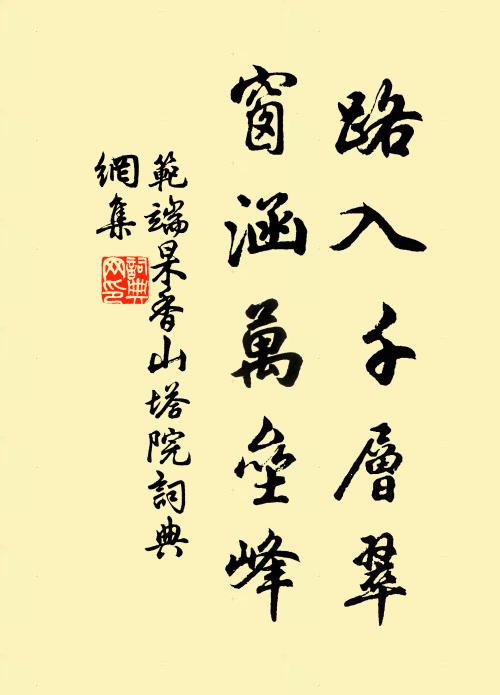 路入千層翠
窗涵萬壘峰
範端杲香山塔院詞典
網集
詞典网印